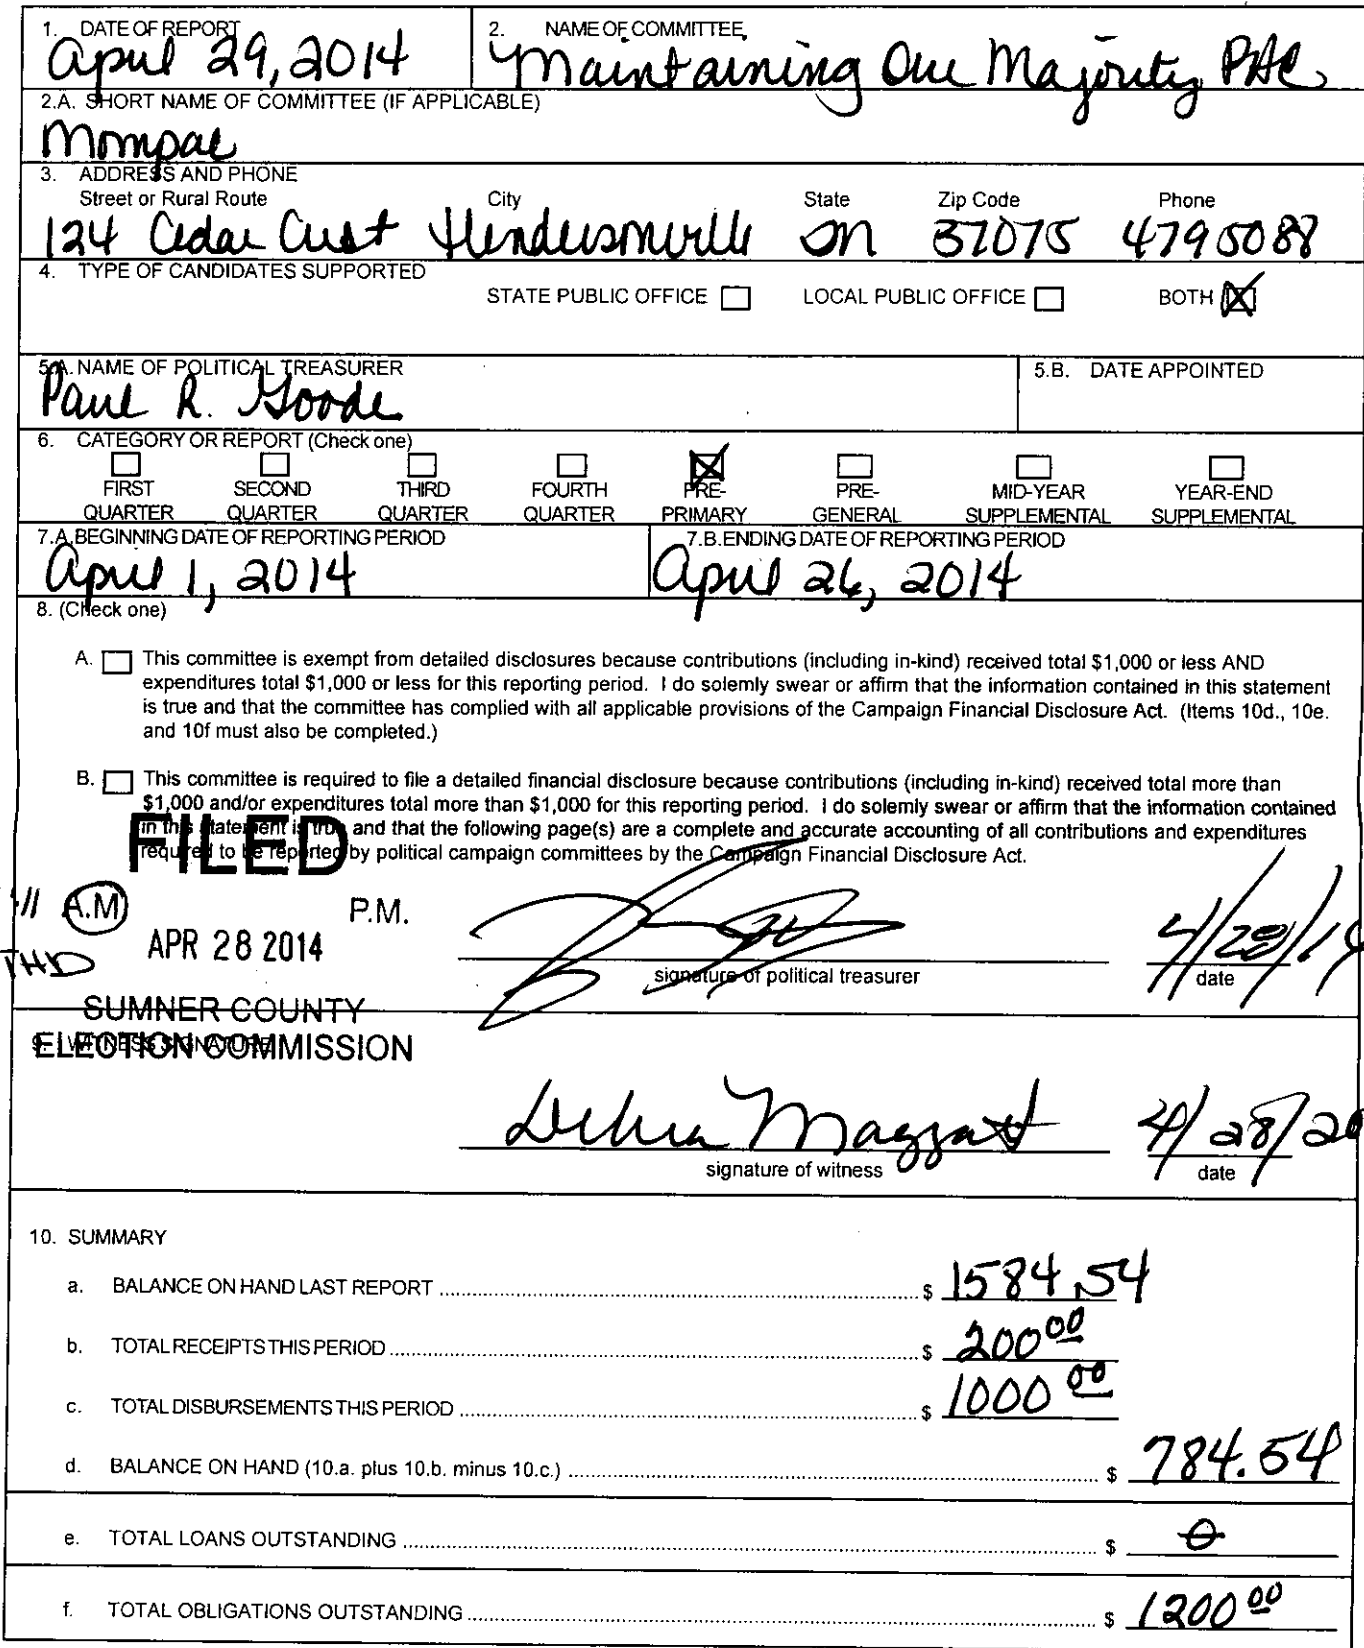 1. DATE OF REPORT
April 29, 2014
2. NAME OF COMMITTEE
Maintaining Our Majority PAC
2.A. SHORT NAME OF COMMITTEE (IF APPLICABLE)
Mompac
3. ADDRESS AND PHONE
Street or Rural Route City State Zip Code Phone
124 Cedar Crest Hendersonville TN 37075 4795088
4. TYPE OF CANDIDATES SUPPORTED
STATE PUBLIC OFFICE LOCAL PUBLIC OFFICE BOTH X
5.A. NAME OF POLITICAL TREASURER
Paul R. Goode
5.B. DATE APPOINTED
6. CATEGORY OR REPORT (Check one)
FIRST QUARTER
SECOND QUARTER
THIRD QUARTER
FOURTH QUARTER
X PRE-PRIMARY
PRE-GENERAL
MID-YEAR SUPPLEMENTAL
YEAR-END SUPPLEMENTAL
7.A. BEGINNING DATE OF REPORTING PERIOD
April 1, 2014
7.B. ENDING DATE OF REPORTING PERIOD
April 26, 2014
8. (Check one)
A. This committee is exempt from detailed disclosures because contributions (including in-kind) received total $1,000 or less AND
expenditures total $1,000 or less for this reporting period. I do solemly swear or affirm that the information contained in this statement
is true and that the committee has complied with all applicable provisions of the Campaign Financial Disclosure Act. (Items 10d., 10e.
and 10f must also be completed.)
B. This committee is required to file a detailed financial disclosure because contributions (including in-kind) received total more than
$1,000 and/or expenditures total more than $1,000 for this reporting period. I do solemly swear or affirm that the information contained
in this statement is true and that the following page(s) are a complete and accurate accounting of all contributions and expenditures
required to be reported by political campaign committees by the Campaign Financial Disclosure Act.
FILED
:11 A.M P.M.
APR 28 2014
THD
SUMNER COUNTY
ELECTION COMMISSION
4/28/14
signature of political treasurer date
9. WITNESS SIGNATURE
Debra Maggart 4/28/20
signature of witness date
10. SUMMARY
a. BALANCE ON HAND LAST REPORT $ 1584.54
b. TOTAL RECEIPTS THIS PERIOD $ 200 00
c. TOTAL DISBURSEMENTS THIS PERIOD $ 1000 00
d. BALANCE ON HAND (10.a. plus 10.b. minus 10.c.) $ 784.54
e. TOTAL LOANS OUTSTANDING $ 0
f. TOTAL OBLIGATIONS OUTSTANDING $ 1200 00